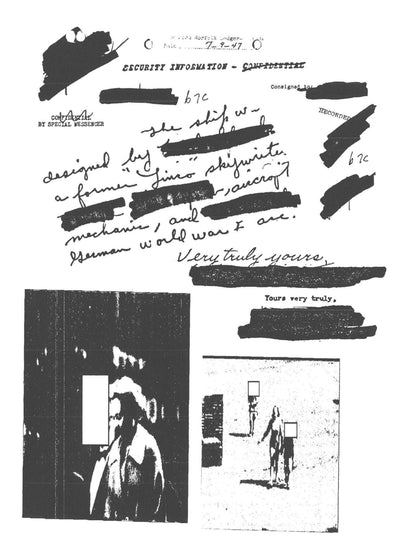 Norfolk
7-9-47
SECURITY INFORMATION - CONFIDENTIAL
Consigned to:
b7c
CONFIDENTIAL
BY SPECIAL MESSENGER
RECORDED
b7c
The ship w-
designed by
a former "Jinro" skywrite.
, aircraft
mechanic, and
German world War I ace.
Very truly yours,
Yours very truly,